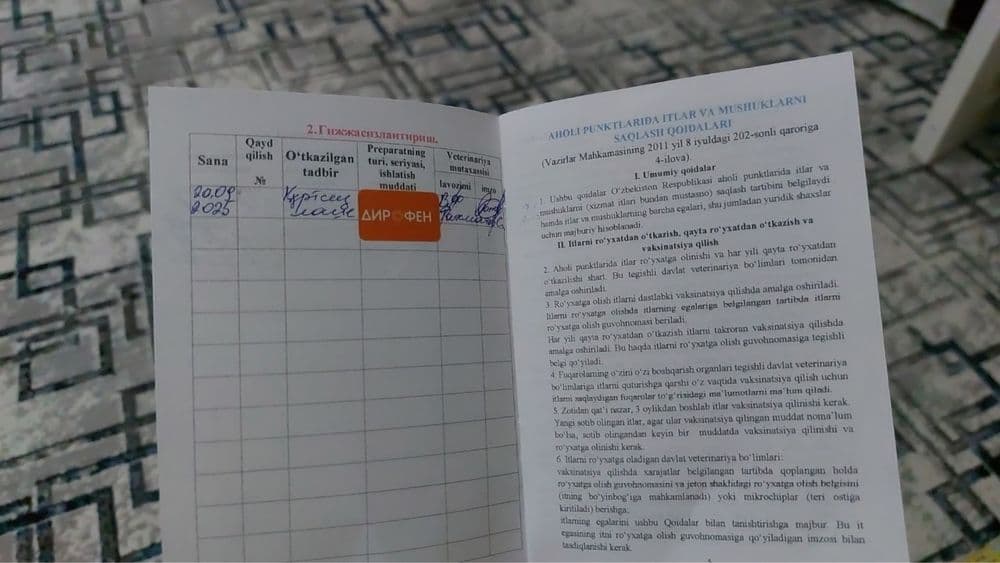 2. Гижжасизлантириш.
Sana
Qayd
qilish
№
O‘tkazilgan
tadbir
Preparatning
turi, seriyasi,
ishlatish
muddati
Veterinariya
mutaxassisi
lavozimi
imzo
20.09
2025
ДИРОФЕН
AHOLI PUNKTLARIDA ITLAR VA MUSHUKLARNI
SAQLASH QOIDALARI
(Vazirlar Mahkamasining 2011 yil 8 iyuldagi 202-sonli qaroriga
4-ilova).
I. Umumiy qoidalar
1. Ushbu qoidalar O‘zbekiston Respublikasi aholi punktlarida itlar va
mushuklarni (xizmat itlari bundan mustasno) saqlash tartibini belgilaydi
hamda itlar va mushuklarning barcha egalari, shu jumladan yuridik shaxslar
uchun majburiy hisoblanadi.
II. Itlarni ro‘yxatdan o‘tkazish, qayta ro‘yxatdan o‘tkazish va
vaksinatsiya qilish
2. Aholi punktlarida itlar ro‘yxatga olinishi va har yili qayta ro‘yxatdan
o‘tkazilishi shart. Bu tegishli davlat veterinariya bo‘limlari tomonidan
amalga oshiriladi.
3. Ro‘yxatga olish itlarni dastlabki vaksinatsiya qilishda amalga oshiriladi.
Itlarni ro‘yxatga olishda itlarning egalariga belgilangan tartibda itlarni
ro‘yxatga olish guvohnomasi beriladi.
Har yili qayta ro‘yxatdan o‘tkazish itlarni takroran vaksinatsiya qilishda
amalga oshiriladi. Bu haqda itlarni ro‘yxatga olish guvohnomasiga tegishli
belgi qo‘yiladi.
4. Fuqarolarning o‘zini o‘zi boshqarish organlari tegishli davlat veterinariya
bo‘limlariga itlarni quturishga qarshi o‘z vaqtida vaksinatsiya qilish uchun
itlarni saqlaydigan fuqarolar to‘g‘risidagi ma’lumotlarni ma’lum qiladi.
5. Zotidan qat’i nazar, 3 oylikdan boshlab itlar vaksinatsiya qilinishi kerak.
Yangi sotib olingan itlar, agar ular vaksinatsiya qilingan muddat noma’lum
bo‘lsa, sotib olingandan keyin bir muddatda vaksinatsiya qilinishi va
ro‘yxatga olinishi kerak.
6. Itlarni ro‘yxatga oladigan davlat veterinariya bo‘limlari:
vaksinatsiya qilishda xarajatlar belgilangan tartibda qoplangan holda
ro‘yxatga olish guvohnomasini va jeton shaklidagi ro‘yxatga olish belgisini
(itning bo‘yinbog‘iga mahkamlanadi) yoki mikrochiplar (teri ostiga
kiritiladi) berishga;
itlarning egalarini ushbu Qoidalar bilan tanishtirishga majbur. Bu it
egasining itni ro‘yxatga olish guvohnomasiga qo‘yiladigan imzosi bilan
tasdiqlanishi kerak.